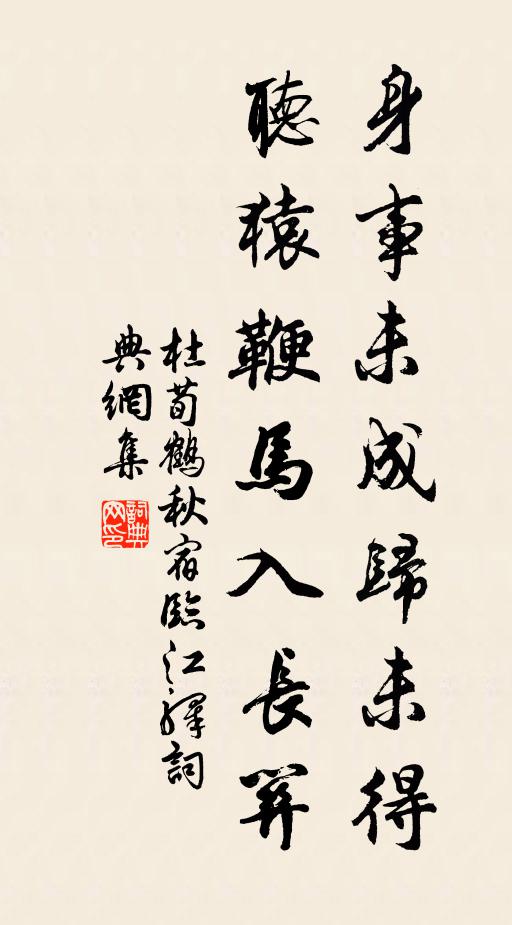 身事未成歸未得
聽猿鞭馬入長關
杜荀鶴秋宿臨江驛詞
典網集
詞典
网印